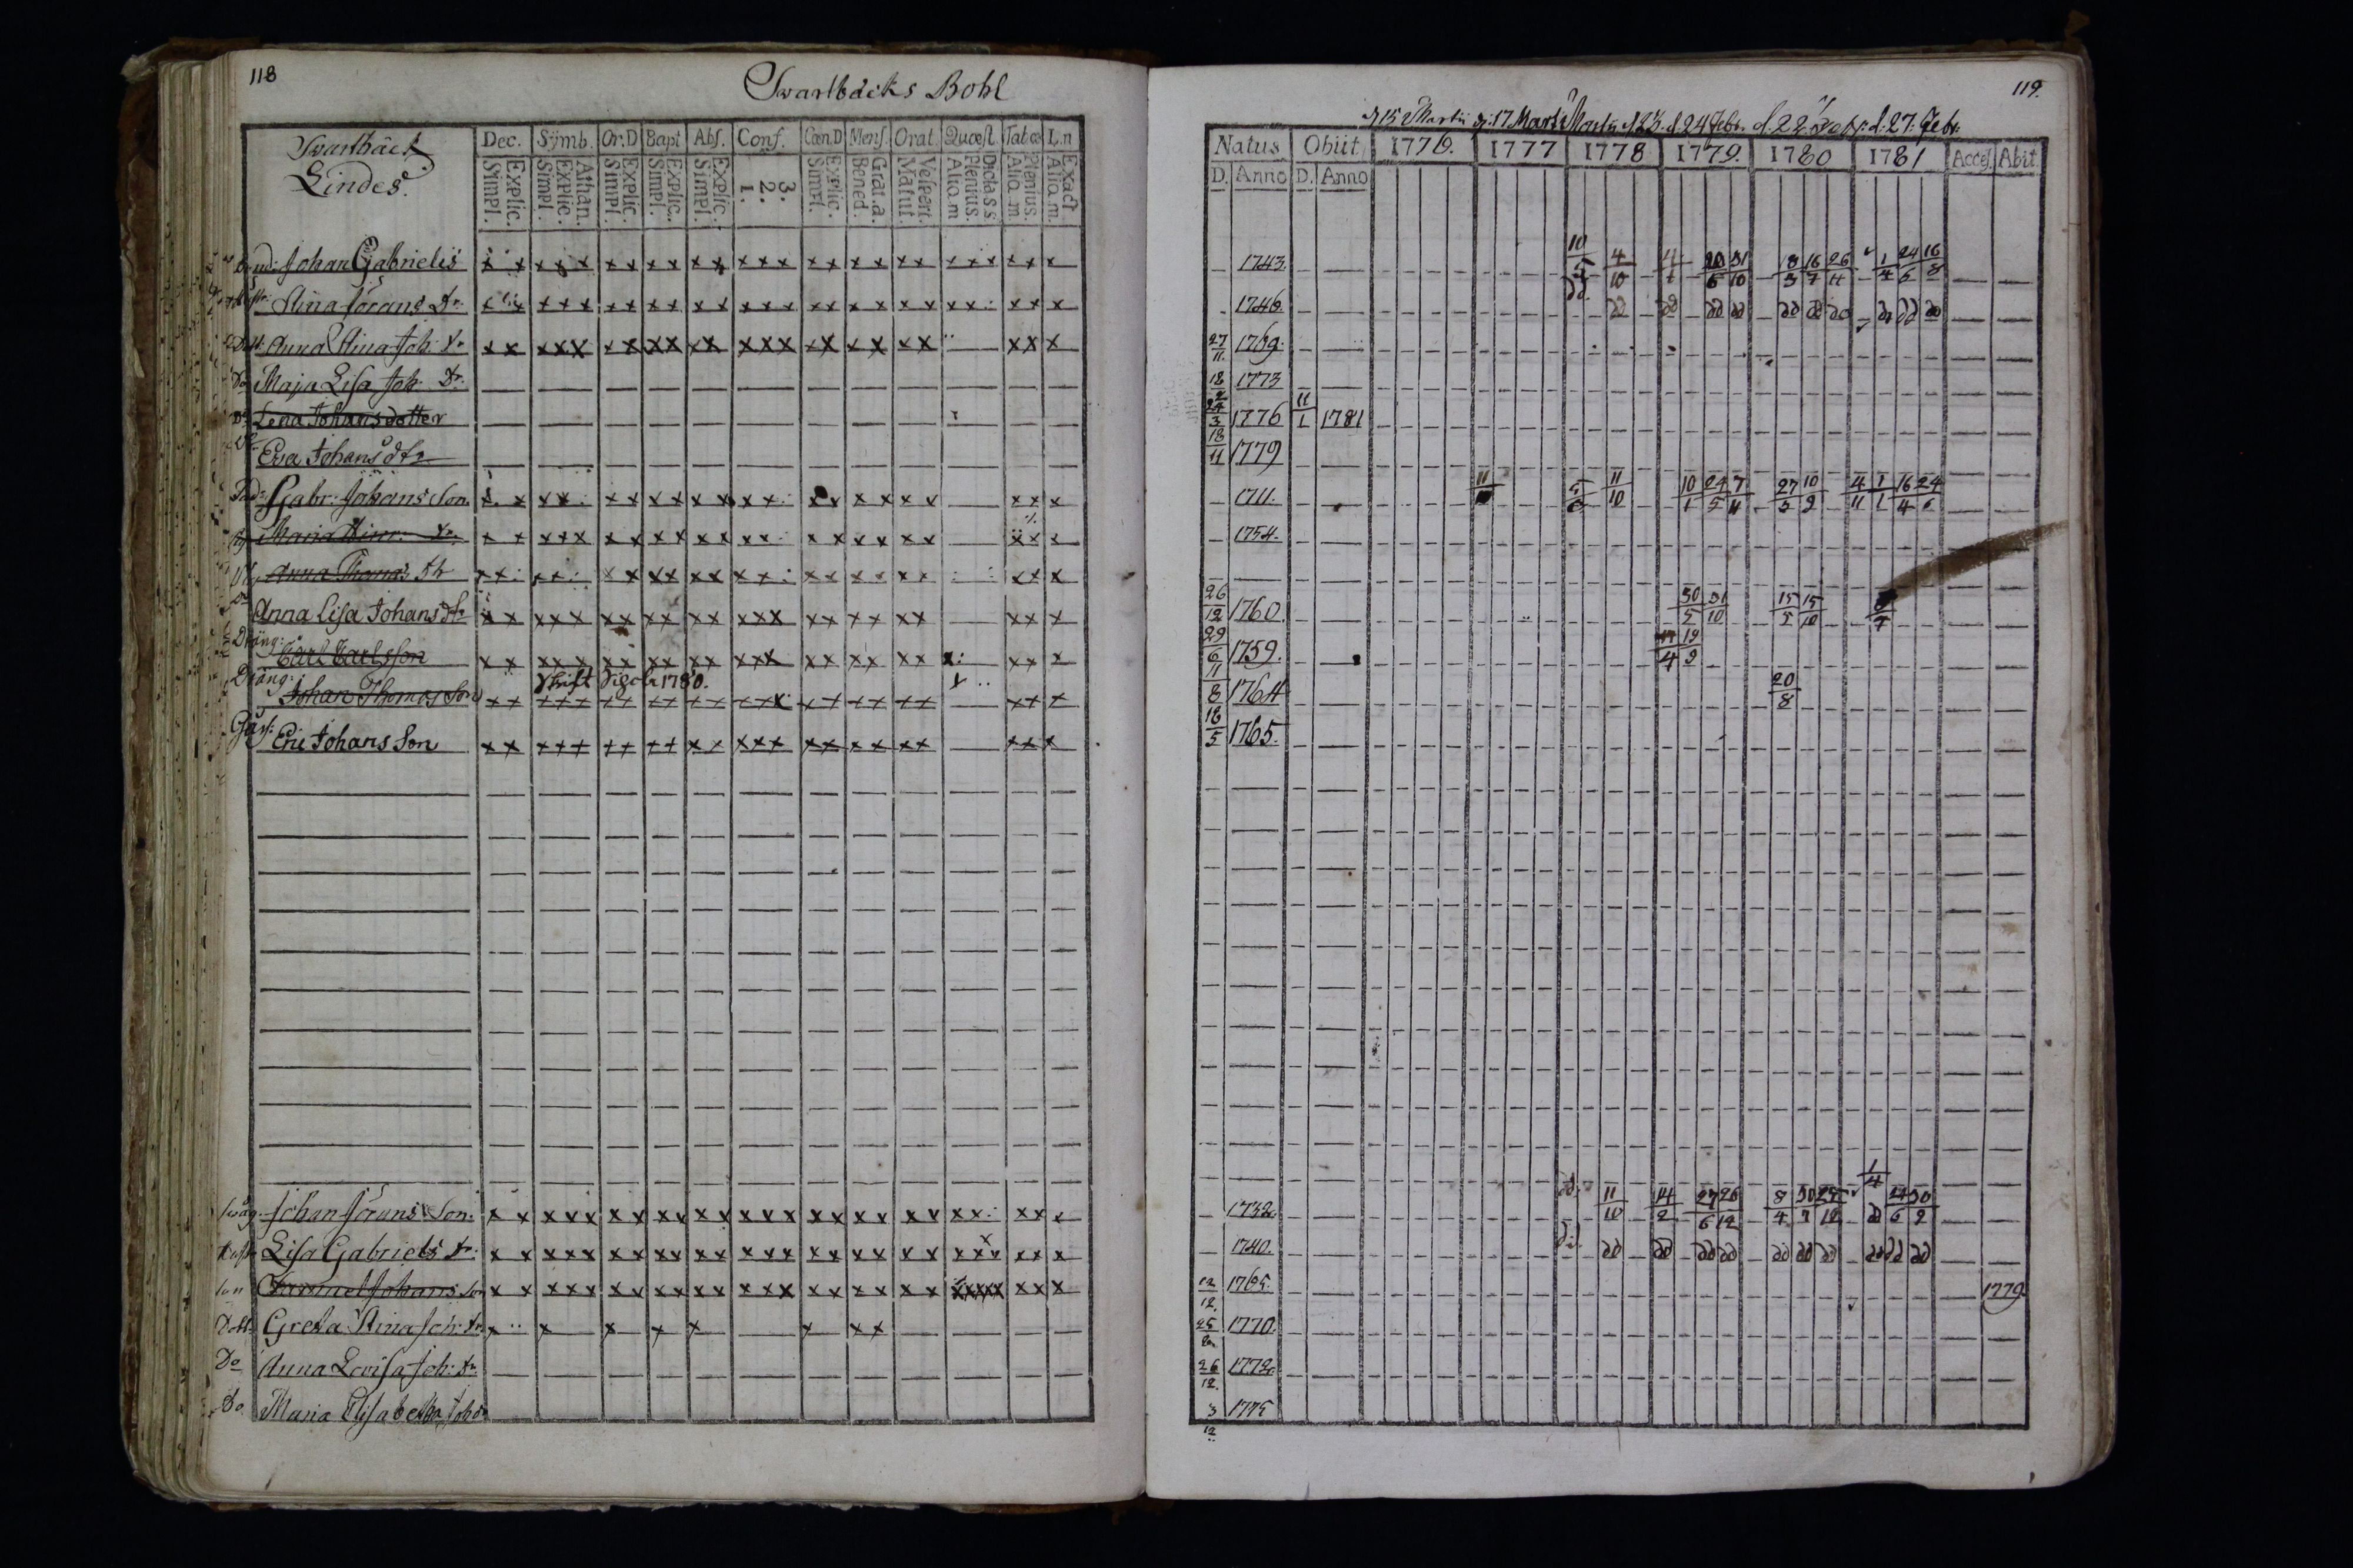 118
Swartbäcks Bohl
Swartbäck
Lindes.
Dec. Symb. Or.D Bapt Abs. Conf. Cœn.D Mens. Orat. Quæst. Tab.œ L.n
Explic. Simpl. Athan. Explic. Simpl. Explic. Simpl. Explic. Simpl. Explic. Simpl. 3. 2. 1. Explic. Simpl. Grat.a. Bened. Vespert. Matut. Plenius. Aliq.m Plenius. Aliq.m Exact Aliq.m
Johan Gabrielis
Stina Jörans Dr.
Anna Stina Joh: Dr
Do Maja Lisa Joh. Dr.
Do Lena Johansdotter
Eva Johans dtr
Gabr: Johans Son
Maria Hinr: Dr.
Anna Thomas Dr
Anna Lisa Johans dr
Dräng:
Carl Carlsson
Dräng: Skrift 1780.
Johan Thomas Son
Eric Johans Son
Johan Jörans Son.
Lisa Gabriels Dr.
Son Samuel Johans Son
Dott. Greta Stina Joh: Dr
Do Anna Lovisa Joh: Dr
Do Maria Elisabetha Joh d
119.
d 15 Martii d. 17 Mart. Martii d. 23. d. 24 Febr. d. 22 d. 27. Febr.
Natus Obiit 1776. 1777 1778 1779. 1780 1781 Acces. Abit
D. Anno D. Anno
1743 10/5 4/10 20/6 31/10 8/3 16/7 26/11 1/4 24/6 16/8
1746. dd dd dd dd dd dd dd dd dd
27/11 1769.
18/2 1773
24/3 1776 11/1 1781
18/11 1779
1711. 11/10 10/1 24/5 7/11 27/5 10/9 4/11 1/1 16/4 24/6
1754.
26/12 1760. 30/5 31/10 15/5 15/10
29/6 1759. 19/9
11/8 1764 20/8
18/5 1765.
1732 dd. 11/10 14/2 27/6 26/12 8/4 30/7 1/4 24/6 30/9
1740. dd dd dd dd dd dd dd dd dd dd
12/12 1765. 1779
25/2 1770.
26/12 1772
3/12 1775